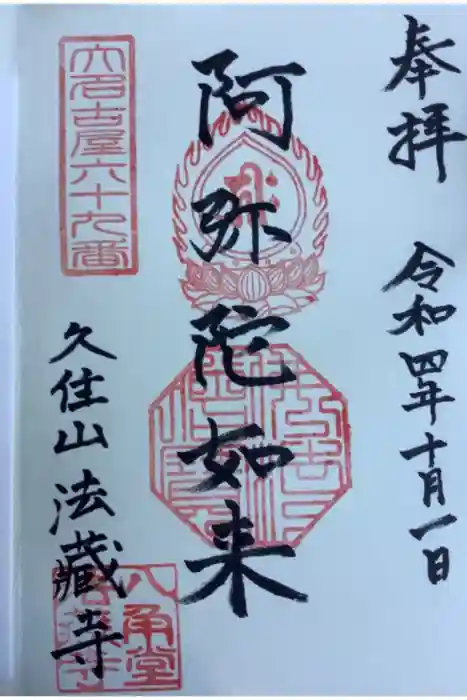 奉拝
令和四年十月一日
阿弥陀如来
大名古屋六十九番
久住山 法藏寺
八角堂